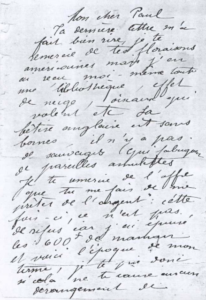 Mon cher Paul
Ta dernière lettre m'a
fait bien rire, je te
remercie de tes
américaines mais j'en
ai reçu moi même toute
une bibliothèque effet
de neige,
valent été. La
petite anglaise est sans
bornes il n'y a pas
de sauvages (qui
de pareilles
Je te remercie de l'offre
que tu me fais de me
prêter de l'argent : cette
fois-ci, ce n'est pas
de refus car j'ai épuisé
les 600 f de maman
et voici l'époque de mon
terme ; donc
si cela ne te cause aucun
dérangement de